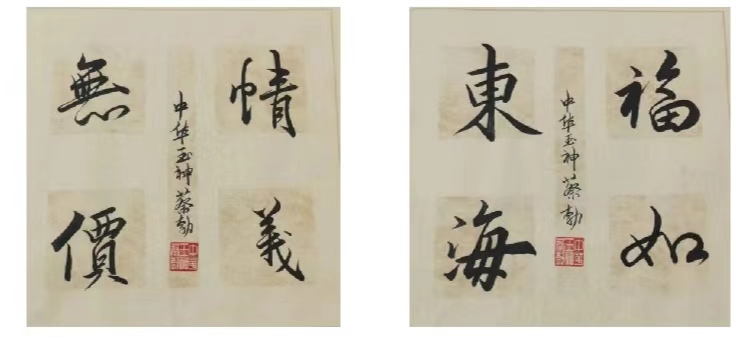 情義
無價
中华玉神蔡勃
福如
東海
中华玉神蔡勃